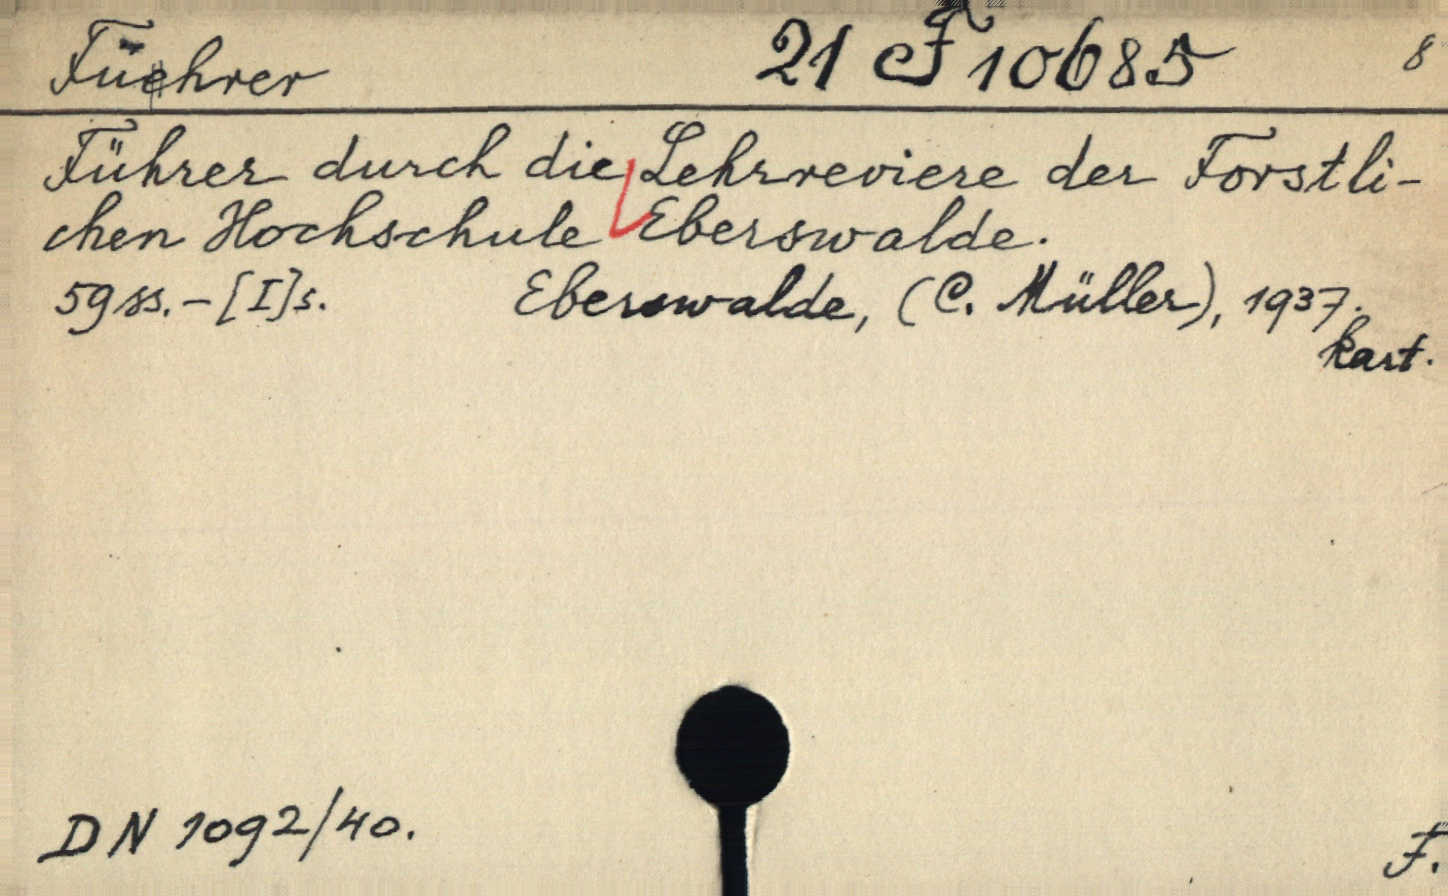 Führer 21 F 10685 8
Führer durch die Lehrreviere der Forstli-
chen Hochschule Eberswalde.
59 ss. - [I] s. Eberswalde, (C. Müller), 1937.
kart.
DN 1092/40. F.